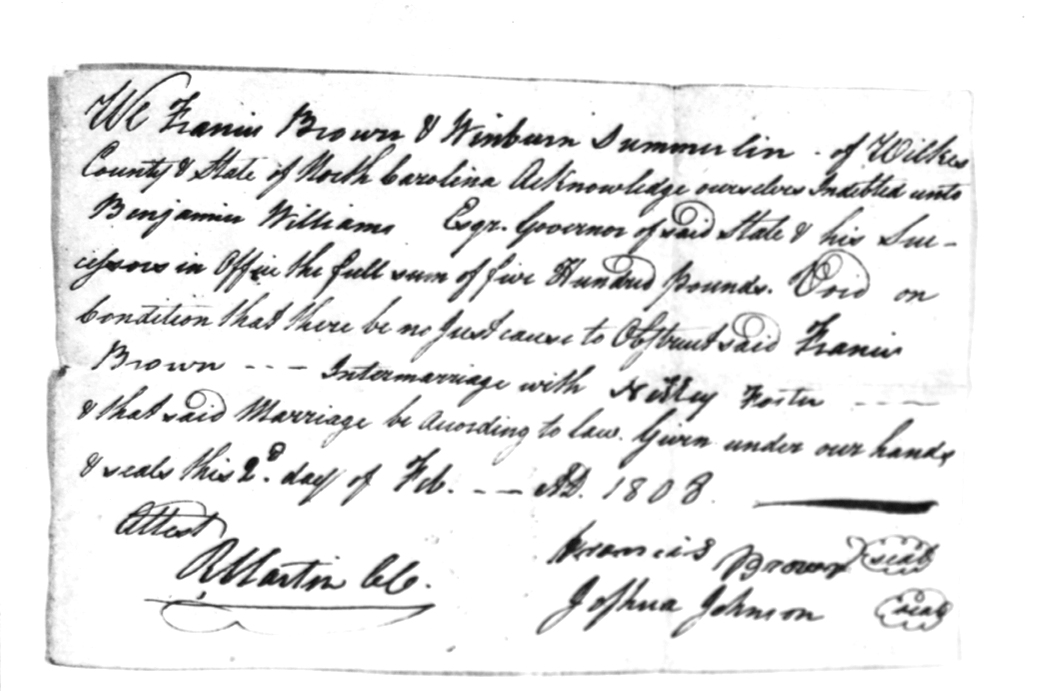 We Francis Brown & Winburn Summerlin - of Wilkes
County & State of North Carolina Acknowledge ourselves Indebted unto
Benjamin Williams Esqr. Governor of said State & his Suc-
cessors in Office the full sum of five Hundred pounds. Void on
Condition that there be no Just cause to Obstruct said Francis
Brown - - - Intermarriage with Foster - - - -
& that said Marriage be according to law. Given under our hands
& seals this 2d. day of Feb. - - - AD. 1808.
Attest
RMartin CC.
Francis Brown seal
Joshua Johnson seal